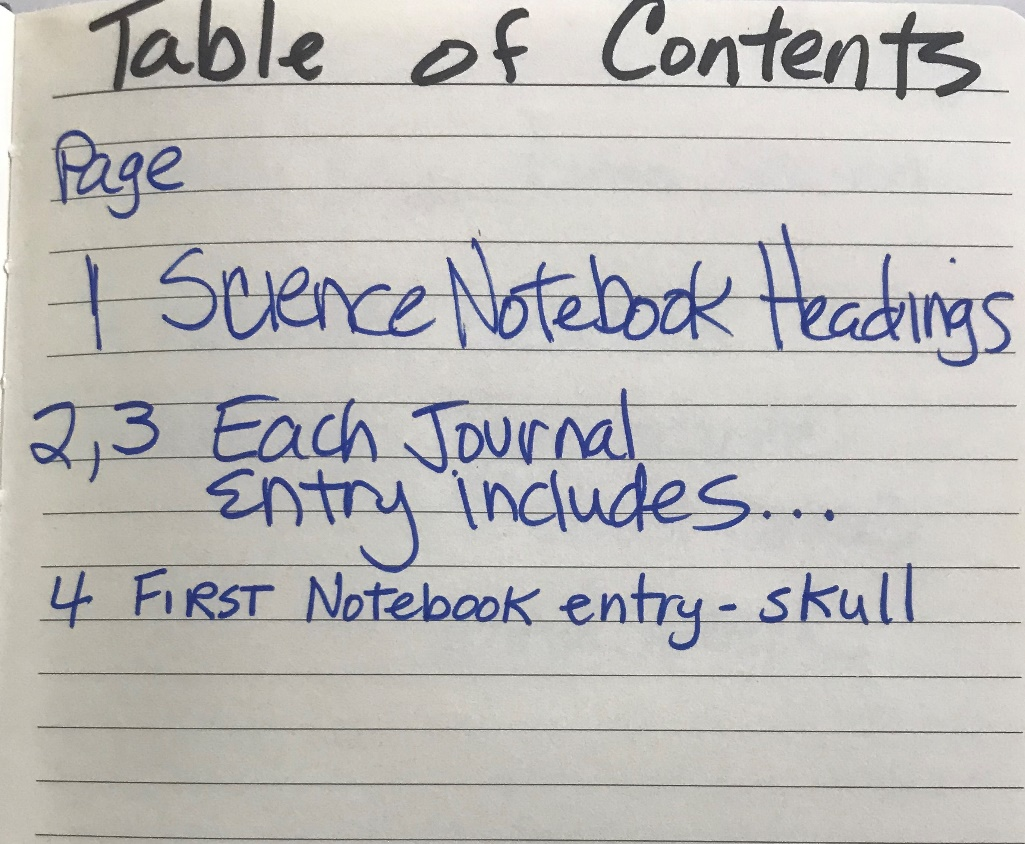 Table of Contents
Page
1 Science Notebook Headings
2,3 Each Journal
Entry includes...
4 FIRST Notebook entry - skull